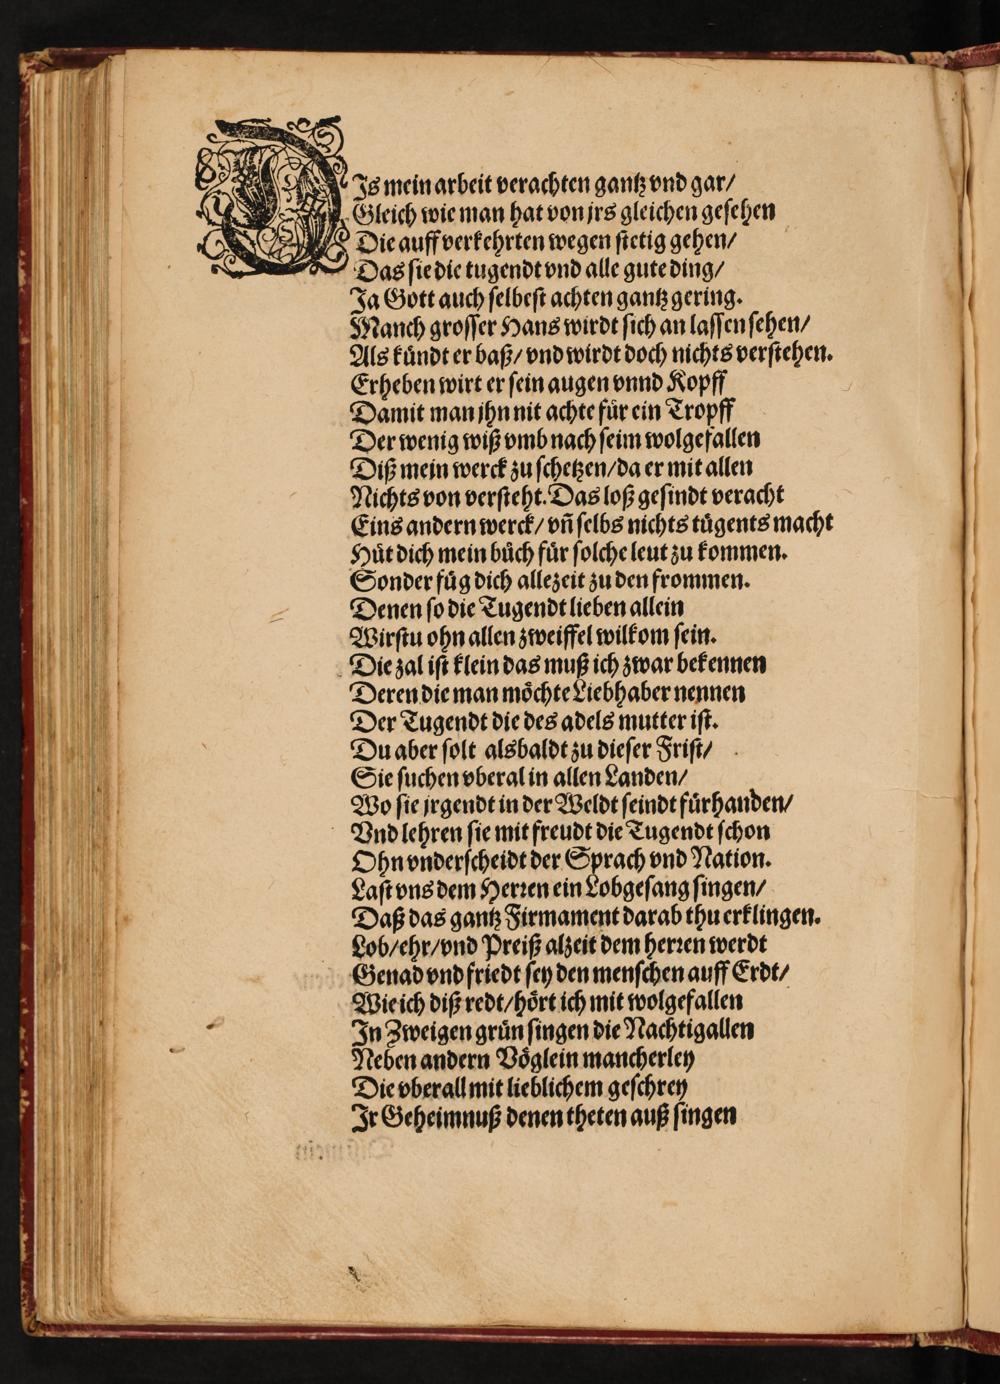 DIs mein arbeit verachten gantz vnd gar/
Gleich wie man hat von jrs gleichen gesehen
Die auff verkehrten wegen stetig gehen/
Das sie die tugendt vnd alle gute ding/
Ja Gott auch selbest achten gantz gering.
Manch grosser Hans wirdt sich an lassen sehen/
Als kündt er baß/ vnd wirdt doch nichts verstehen.
Erheben wirt er sein augen vnnd Kopff
Damit man jhn nit achte für ein Tropff
Der wenig wiß vmb nach seim wolgefallen
Diß mein werck zu schetzen/da er mit allen
Nichts von versteht. Das loß gesindt veracht
Eins andern werck/ vñ selbs nichts tügents macht
Hüt dich mein büch für solche leut zu kommen.
Sonder füg dich allezeit zu den frommen.
Denen so die Tugendt lieben allein
Wirstu ohn allen zweiffel wilkom sein.
Die zal ist klein das muß ich zwar bekennen
Deren die man möchte Liebhaber nennen
Der Tugendt die des adels mutter ist.
Du aber solt alsbaldt zu dieser Frist/
Sie suchen vberal in allen Landen/
Wo sie jrgendt in der Weldt seindt fürhanden/
Vnd lehren sie mit freudt die Tugendt schon
Ohn vnderscheidt der Sprach vnd Nation.
Last vns dem Herꝛen ein Lobgesang singen/
Daß das gantz Firmament darab thu erklingen.
Lob/ehr/vnd Preiß alzeit dem herꝛen werdt
Genad vnd friedt sey den menschen auff Erdt/
Wie ich diß redt/hört ich mit wolgefallen
In Zweigen grün singen die Nachtigallen
Neben andern Vöglein mancherley
Die vberall mit lieblichem geschrey
Jr Geheimnuß denen theten auß singen